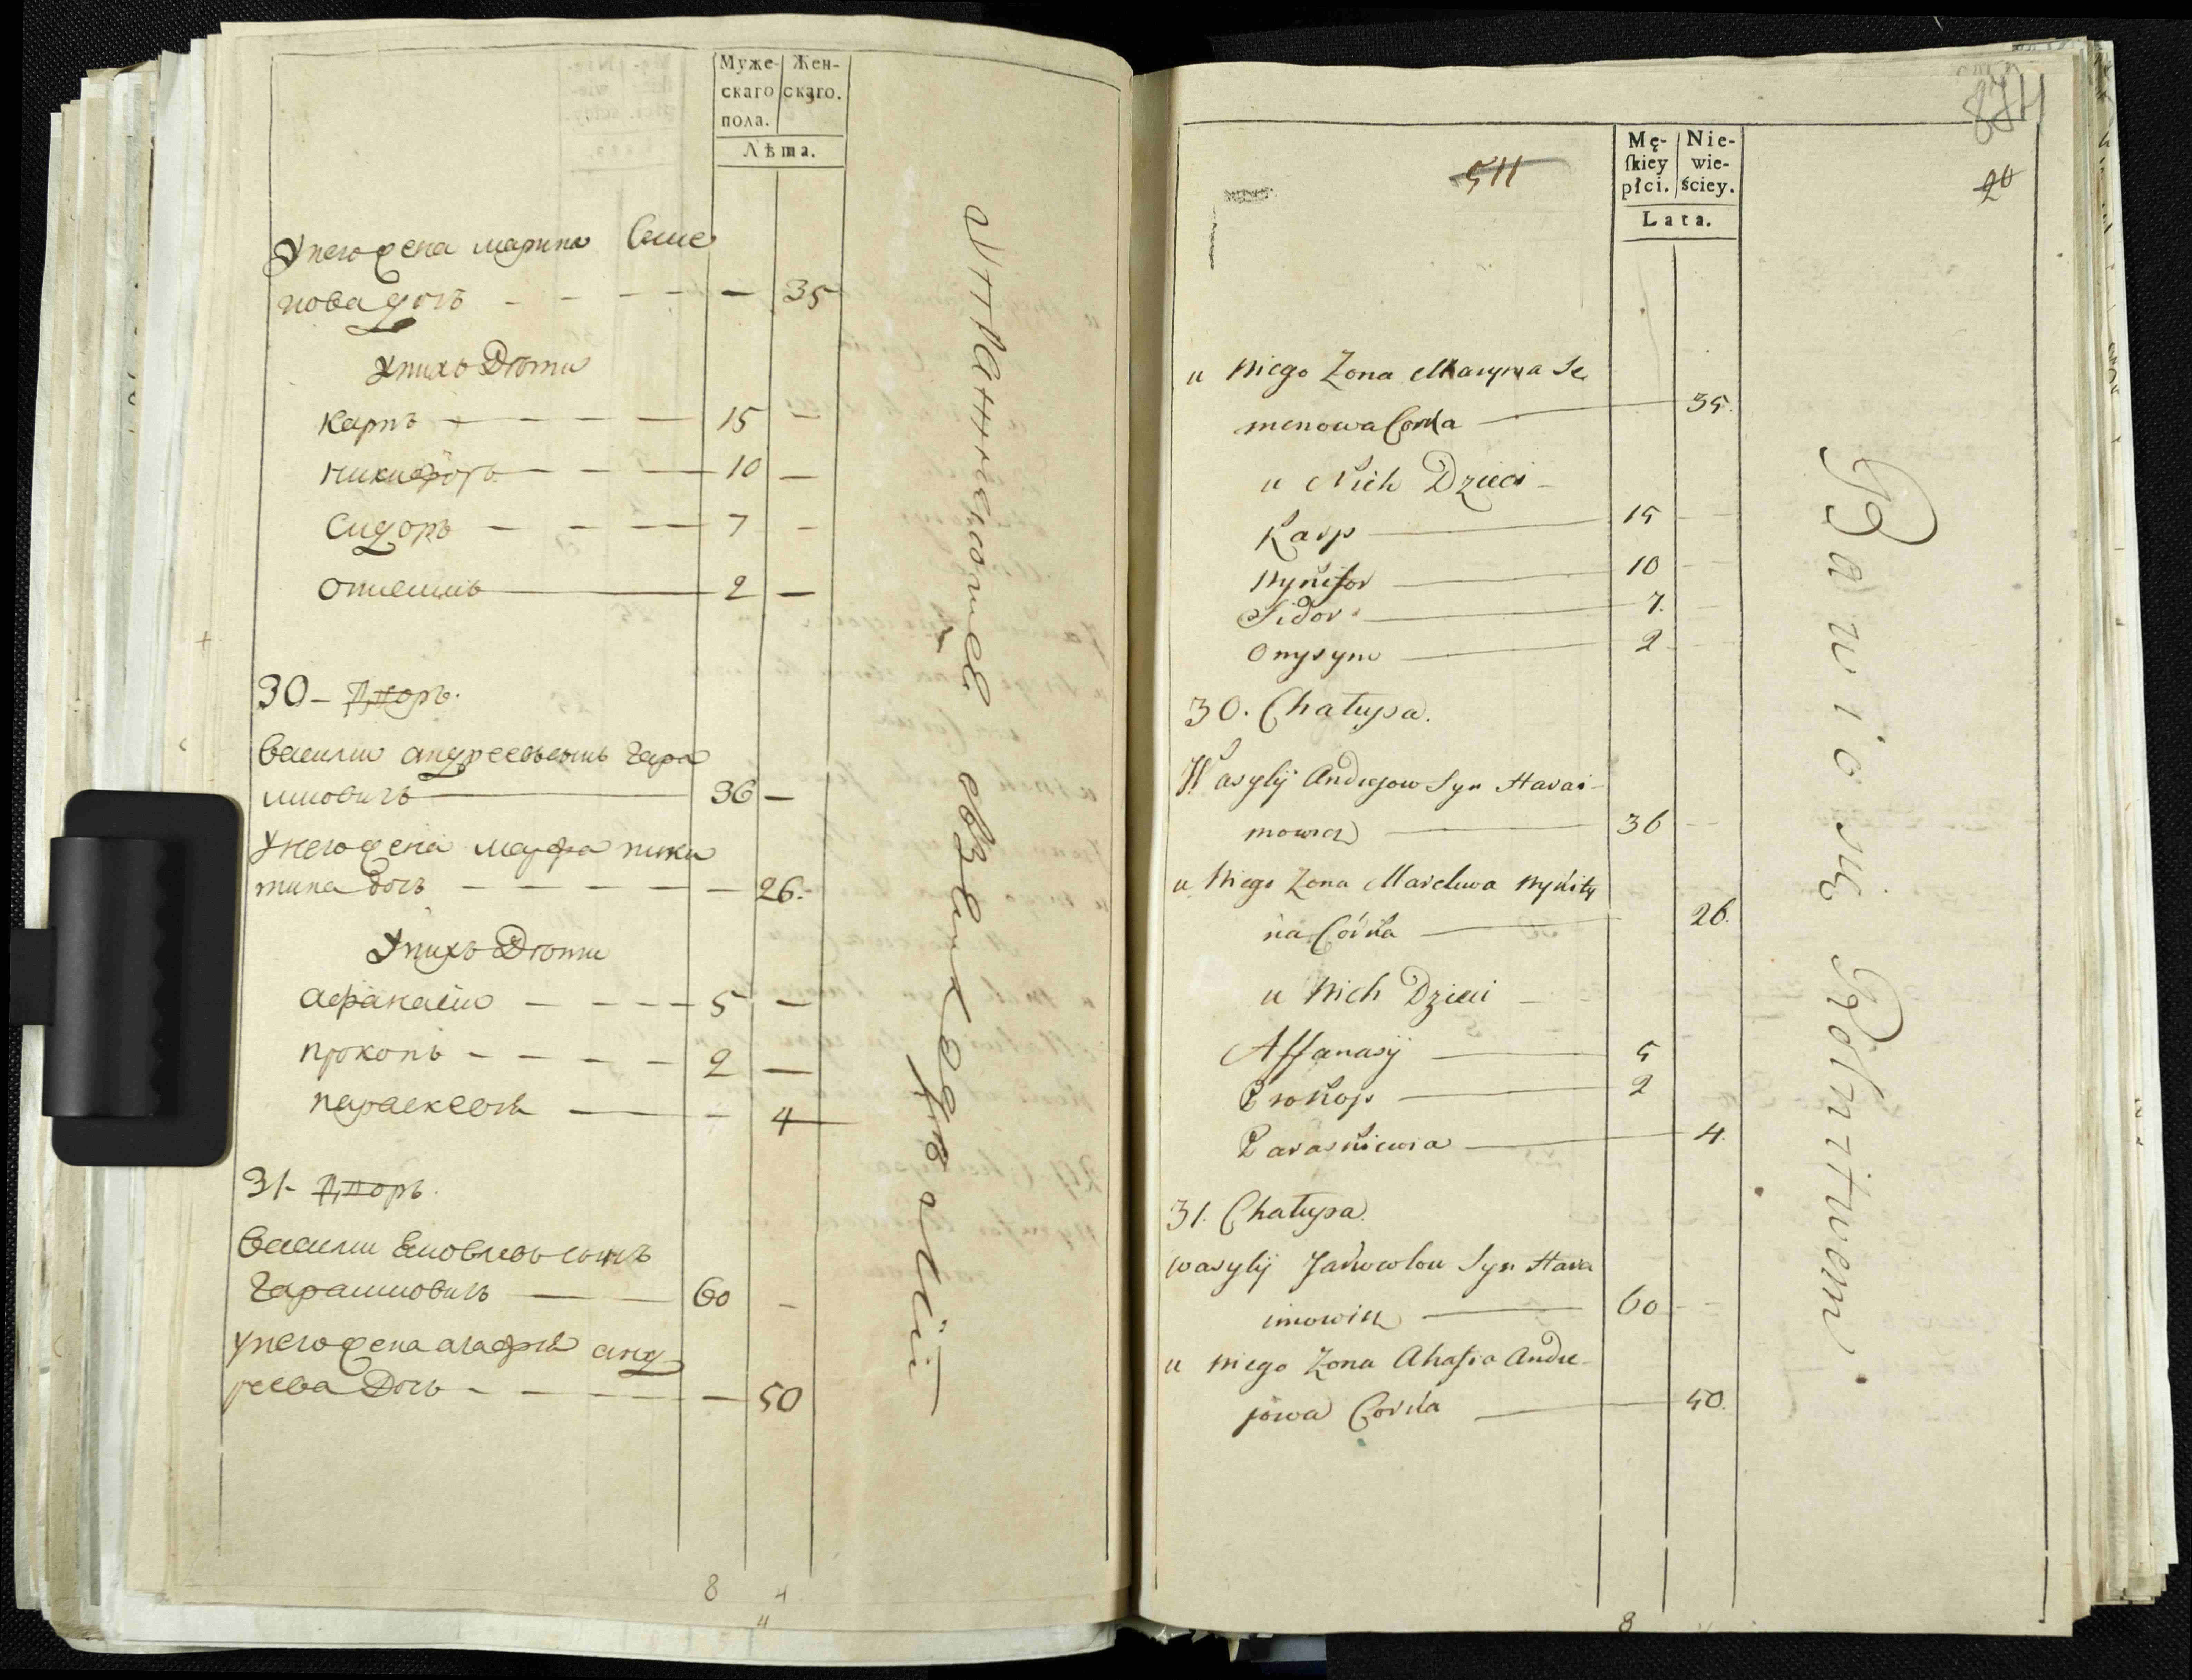 Муже-
скаго
пола.
Жен-
скаго.
Лѣта.
У него жена марина Семе
нова дочь — 35
У нихъ Дѣти
Карпъ — 15 —
никифоръ — 10 —
Сидоръ — 7 —
Онисимъ — 2 —
30 – Дворъ.
Василии андреевъ сынъ гара
симовичъ — 36 —
У него жена марфа ники
тина дочь — 26.
У нихъ Дѣти
афанасіи — 5 —
прокопъ — 2 —
параскевія — 4
31 – Дворъ.
Василии сынъ
гарасимовичъ — 60 –
у него жена агафія анд
реева Дочь — 50
8 4
4
511
20
Mę-
ſkiey
płci.
Nie-
wie-
ściey.
Lata.
u Niego Zona Maryna Se
menowa Corka — 35.
u Nich Dzieci –
Karp — 15
Nykifor — 10
Sidor — 7.
Onysym — 2
30. Chałupa.
Wasylij Andrejow Syn Harasi-
mowicz — 36
u Niego Zona Marchwa Nykity
na Córka — 26.
u Nich Dzieci –
Affanasij — 5
Prokop — 2
Paraskiewia — 4.
31. Chałupa.
Wasylij Syn Hara
simowicz — 60
u Niego Zona Ahafia Andre-
jowa Corka — 50.
8